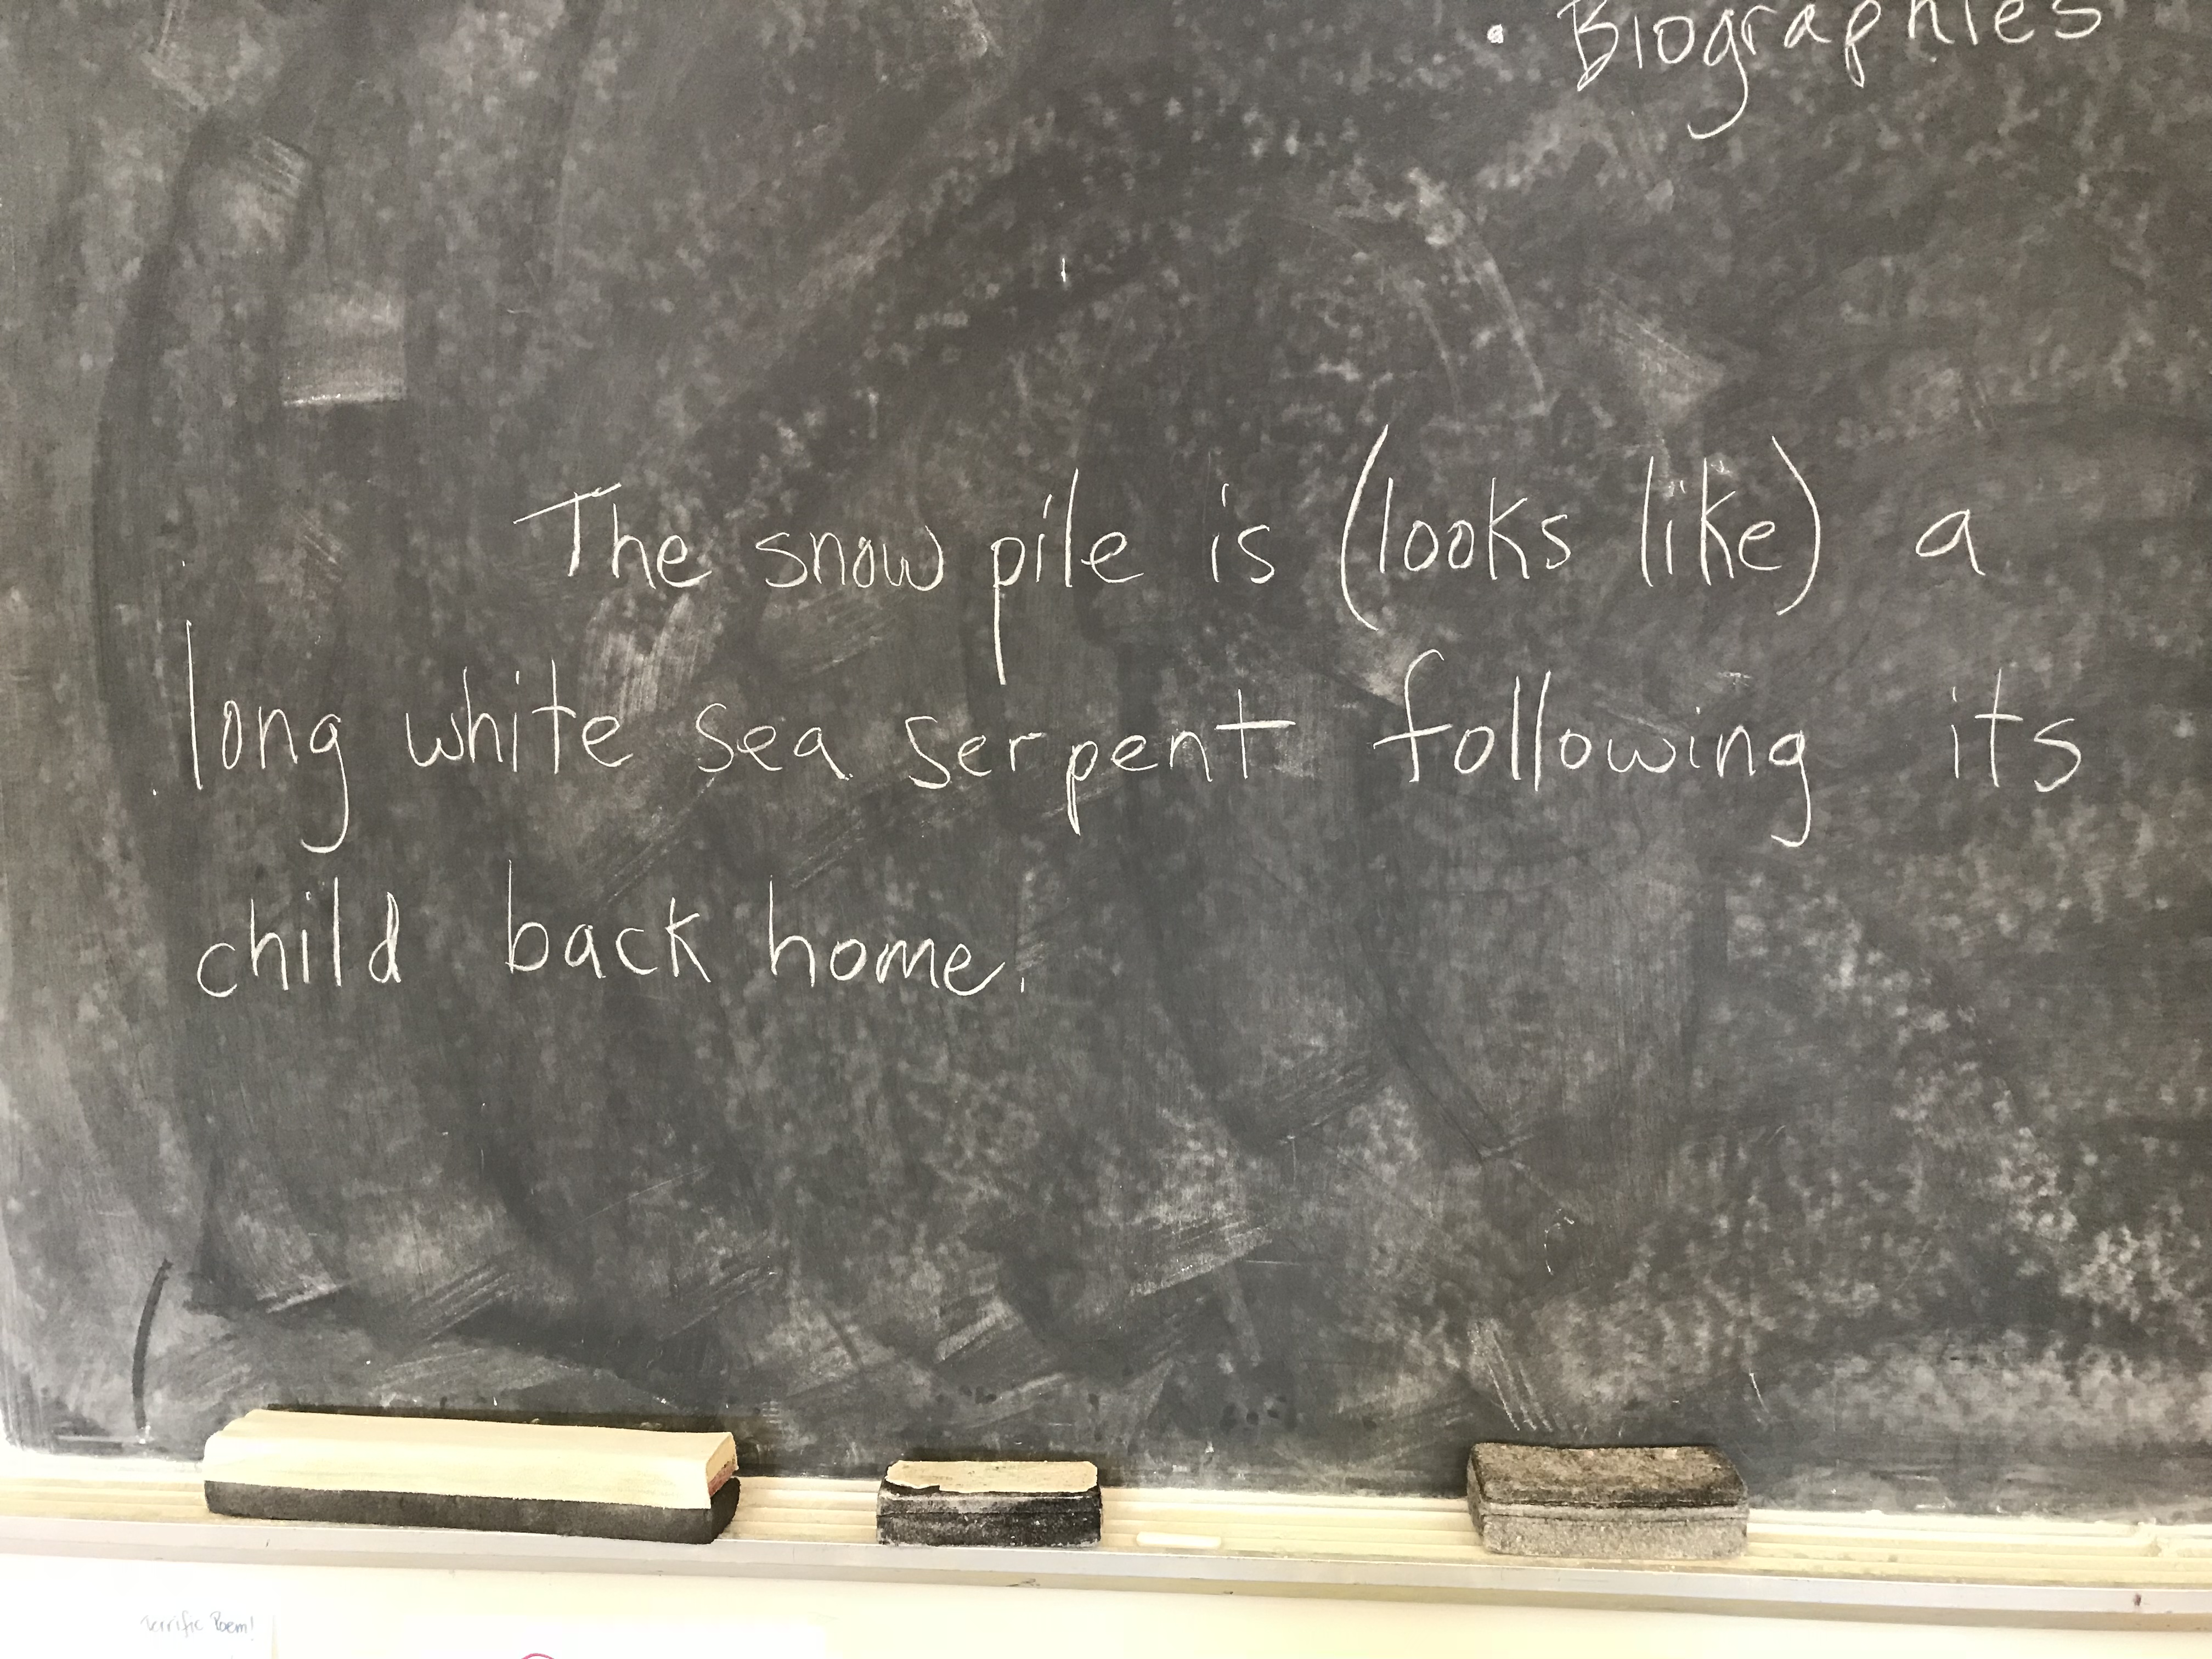 • Biographies
The snow pile is (looks like) a
long white sea serpent following its
child back home.
Terrific Poem!